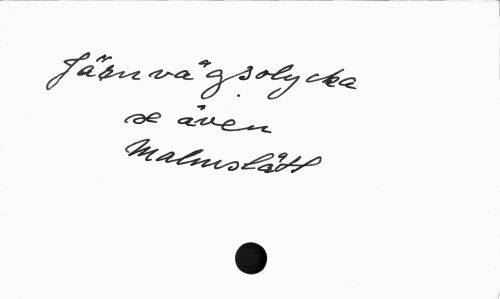 Järnvägsolycka
se även
Malmslätt